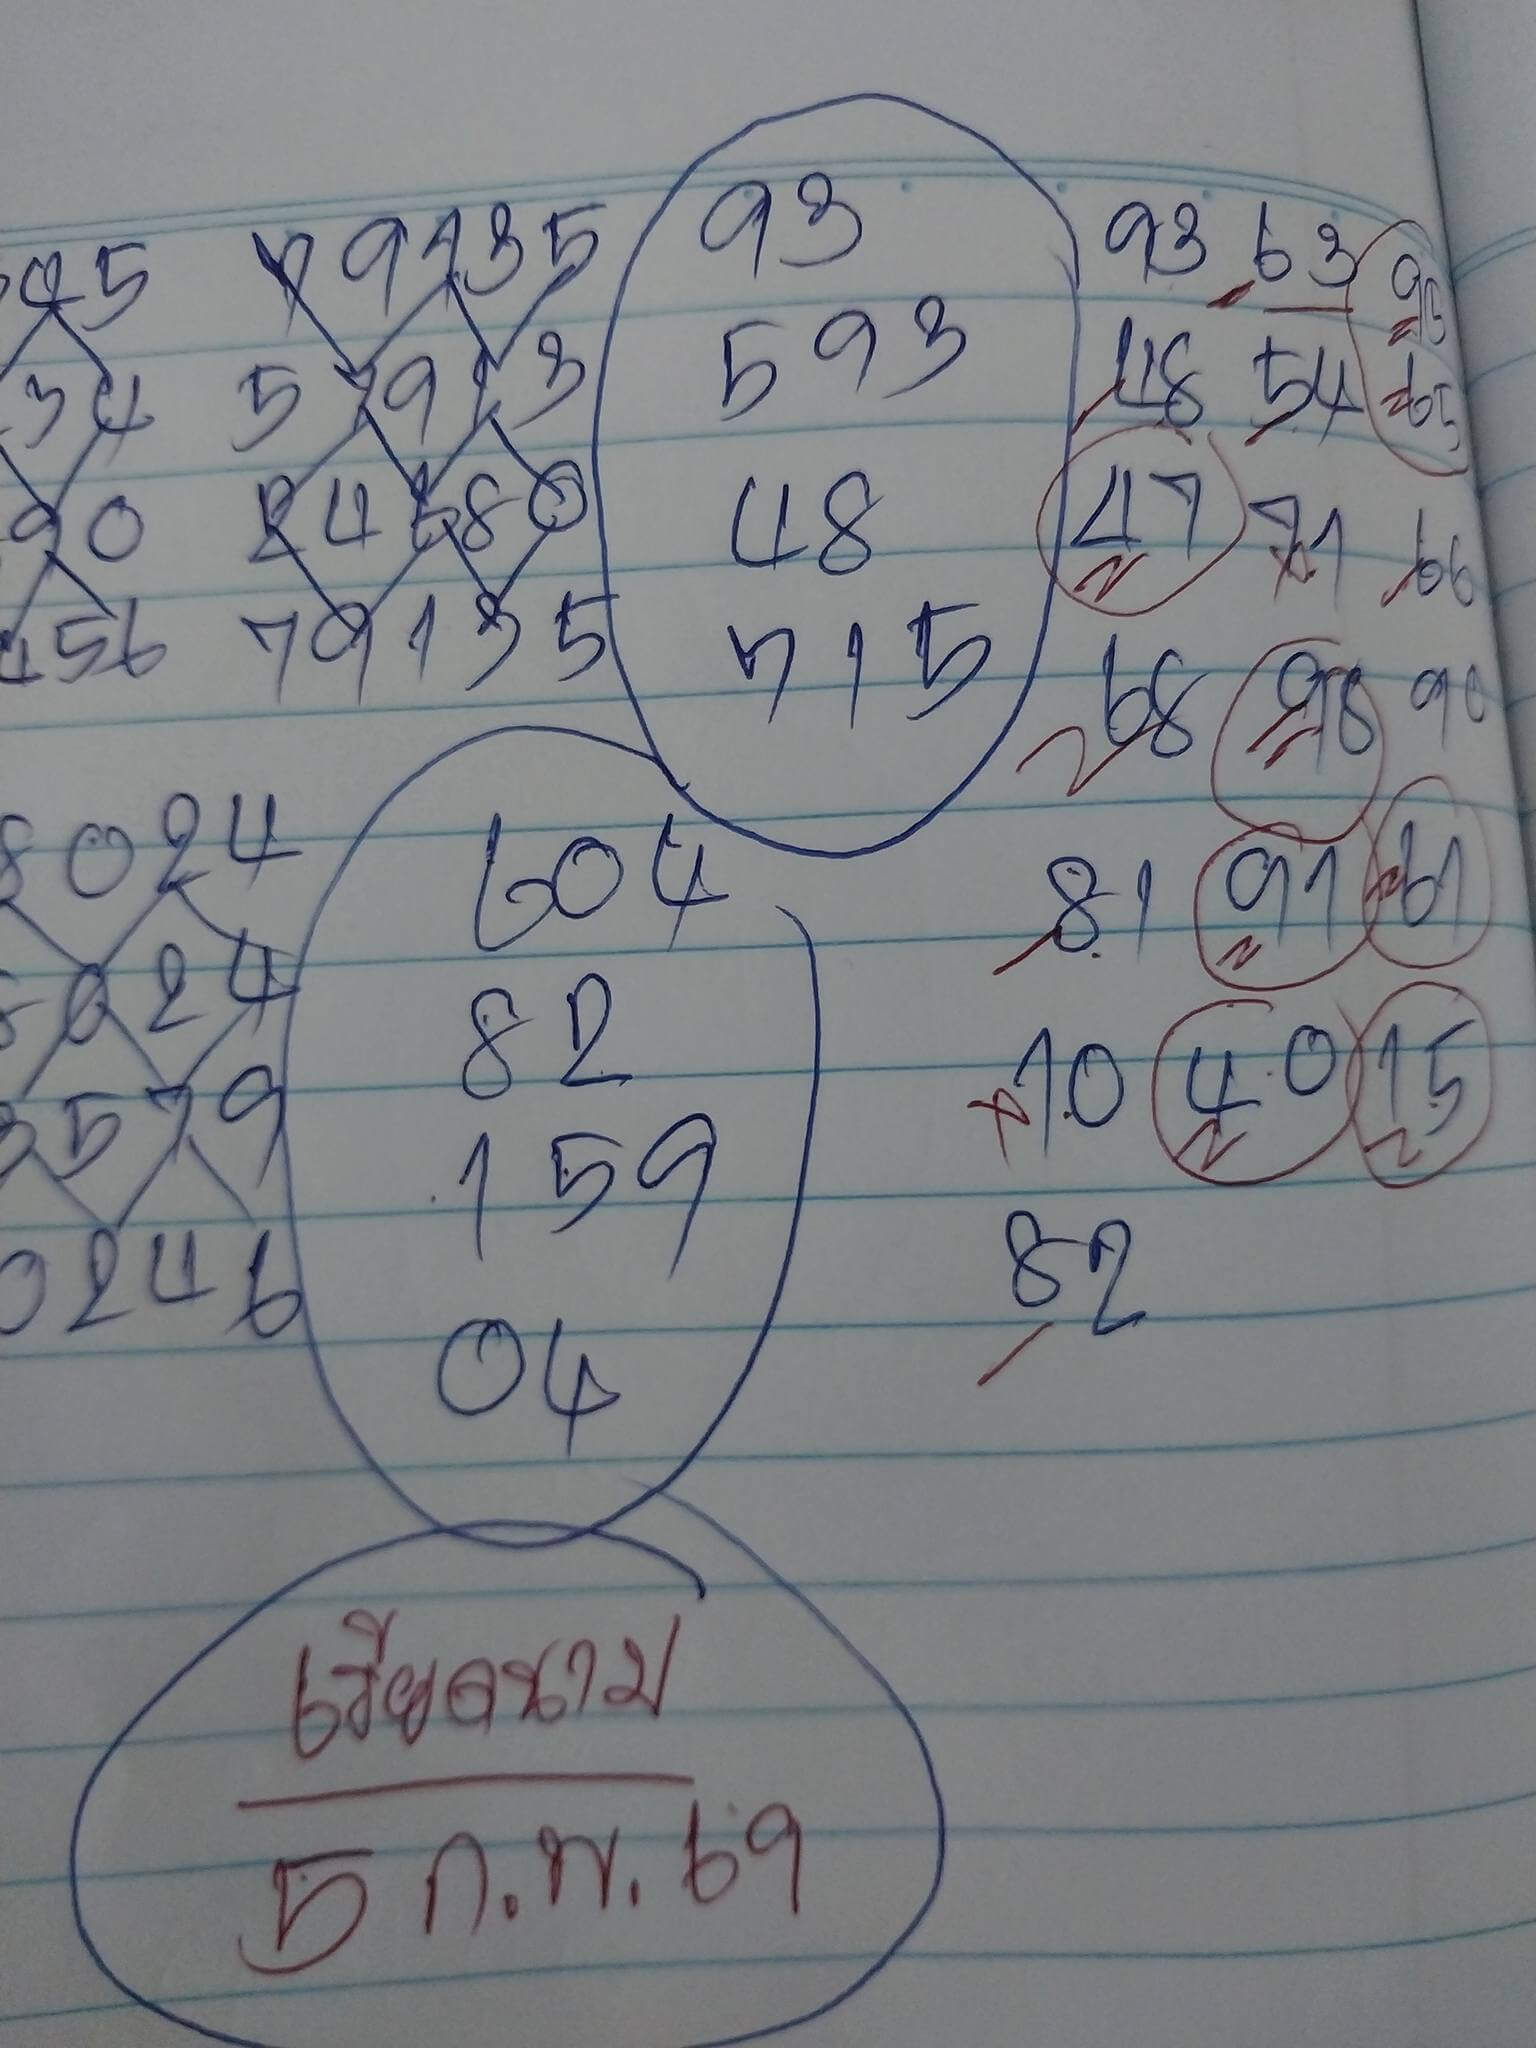 45 79135 93 93 63 95
34 57913 593 48 54 65
90 24680 48 47 71 66
456 79135 715 68 98 9
8024 604 81 91 61
8024 82 10 40 15
3579 159 82
0246 04
เวียดนาม
5 ก.พ. 69